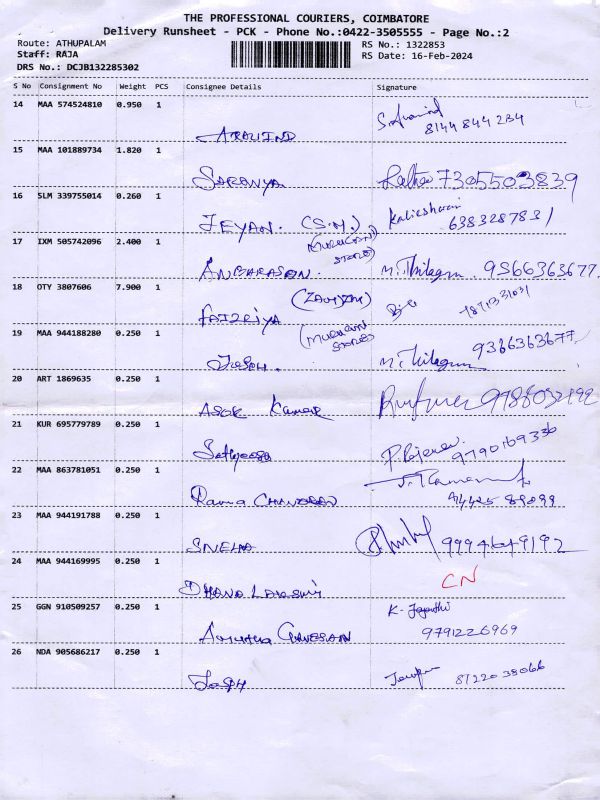 THE PROFESSIONAL COURIERS, COIMBATORE
Delivery Runsheet - PCK - Phone No.:0422-3505555 - Page No.:2
Route: ATHUPALAM
RS No.: 1322853
Staff: RAJA
RS Date: 16-Feb-2024
DRS No.: DCJB132285302
S No Consignment No Weight PCS Consignee Details Signature
14 MAA 574524810 0.950 1
8144 844 234
ARAVIND
15 MAA 101889734 1.820 1
SARANYA 7305503839
16 SLM 339755014 0.260 1
JEYAN. (S.M.) 6383287831
17 IXM 505742096 2.400 1 (MURUGAN STORES)
ANBARASAN. M. Thilagam 9366363677
18 OTY 3807606 7.900 1
19 MAA 944188280 0.250 1 (MURUGAN STORES)
JOSPH. M. Thilagam 9366363677
20 ART 1869635 0.250 1
ASOK Kumar
21 KUR 695779789 0.250 1
9790169336
22 MAA 863781051 0.250 1
Rama CHANDRAN
23 MAA 944191788 0.250 1
SNEHA
24 MAA 944169995 0.250 1
CN
DHANA LAKSHMI
25 GGN 910509257 0.250 1
K- Jayanthi
GANESAN 9791226969
26 NDA 905686217 0.250 1
JOSPH 8122038066